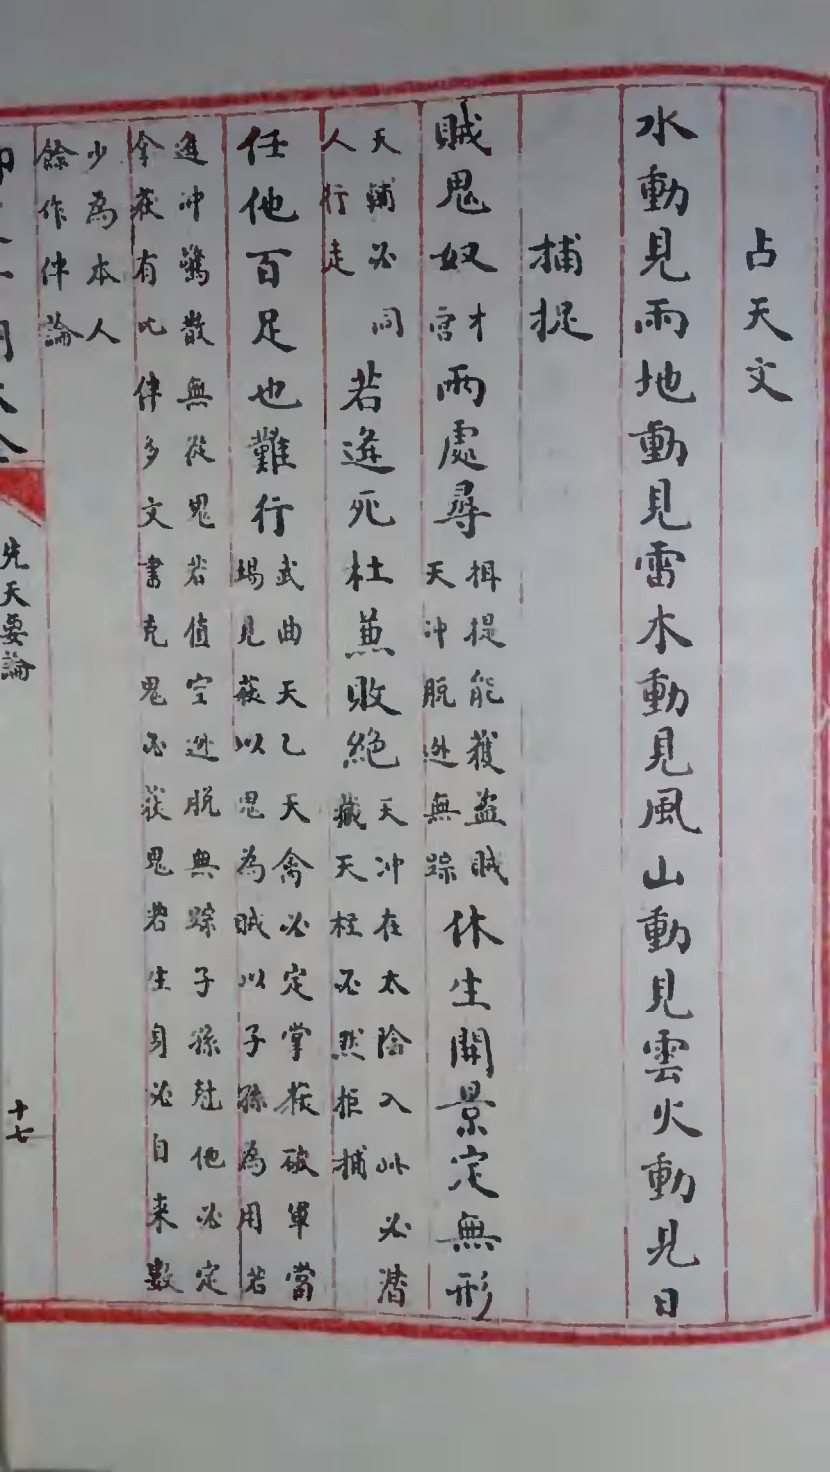 占天文
水動見雨地動見雷木動見風山動見雲火動見日
捕捉
賊鬼奴才宮兩處尋揖提能獲盗賊天冲脱逃無踪休生開景定無形
天輔必同人行走若逢死杜兼敗絕天冲在太陰入此必潛藏天柱必然拒捕
任他百足也難行武曲天乙天禽必定掌获破軍當場見获以鬼為賊以子孫為用若
逢冲驚散無從鬼若值空逃脱無踪子孫尅他必定拿获有比伴多文書克鬼必获鬼若生身必自来數
少為本人餘作伴論
先天要論
十七